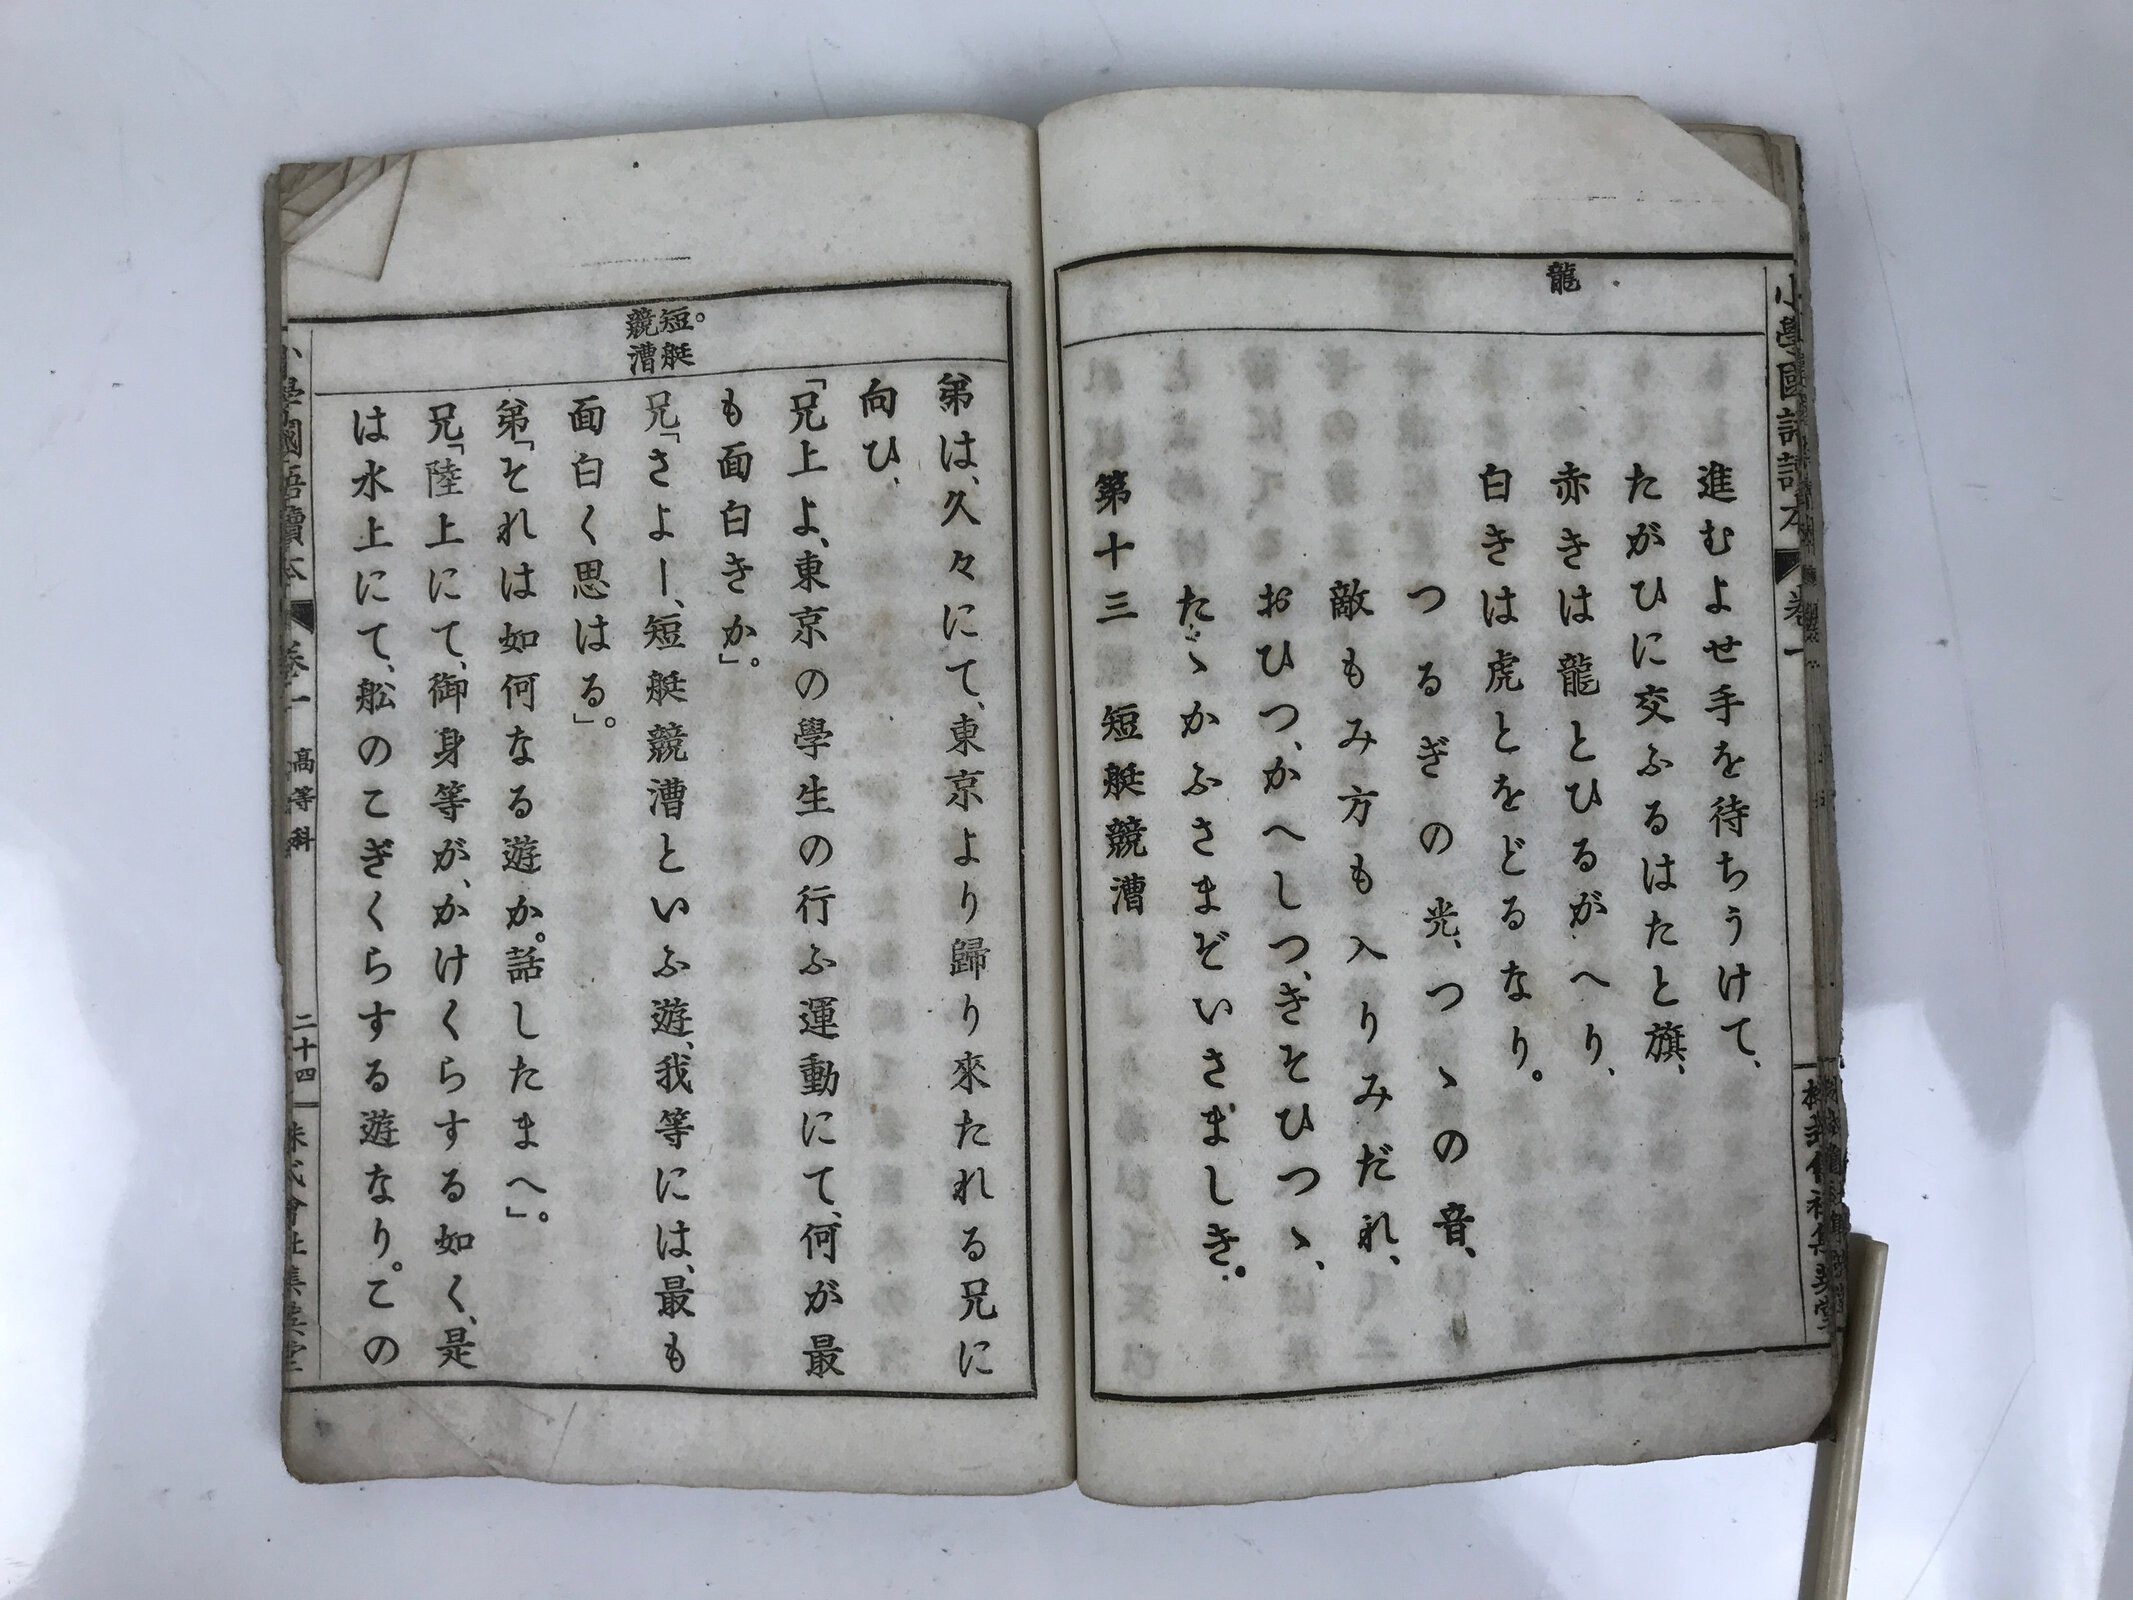 小學國語讀本 卷一
龍
進むよせ手を待ちうけて、
たがひに交ふるはたと旗、
赤きは龍とひるがへり、
白きは虎とをどるなり。
つるぎの光、つゝの音、
敵もみ方も入りみだれ、
おひつ、かへしつ、きそひつゝ、
たゝかふさまぞいさましき。
第十三 短艇競漕
短艇
競漕
弟は、久々にて、東京より歸り來たれる兄に
向ひ、
「兄上よ、東京の學生の行ふ運動にて、何が最
も面白きか」。
兄「さよー、短艇競漕といふ遊、我等には、最も
面白く思はる」。
弟「それは如何なる遊か。話したまへ」。
兄「陸上にて、御身等が、かけくらする如く、是
は水上にて、舩のこぎくらする遊なり。この
小學國語讀本 卷一 高等科 二十四 株式會社集英堂